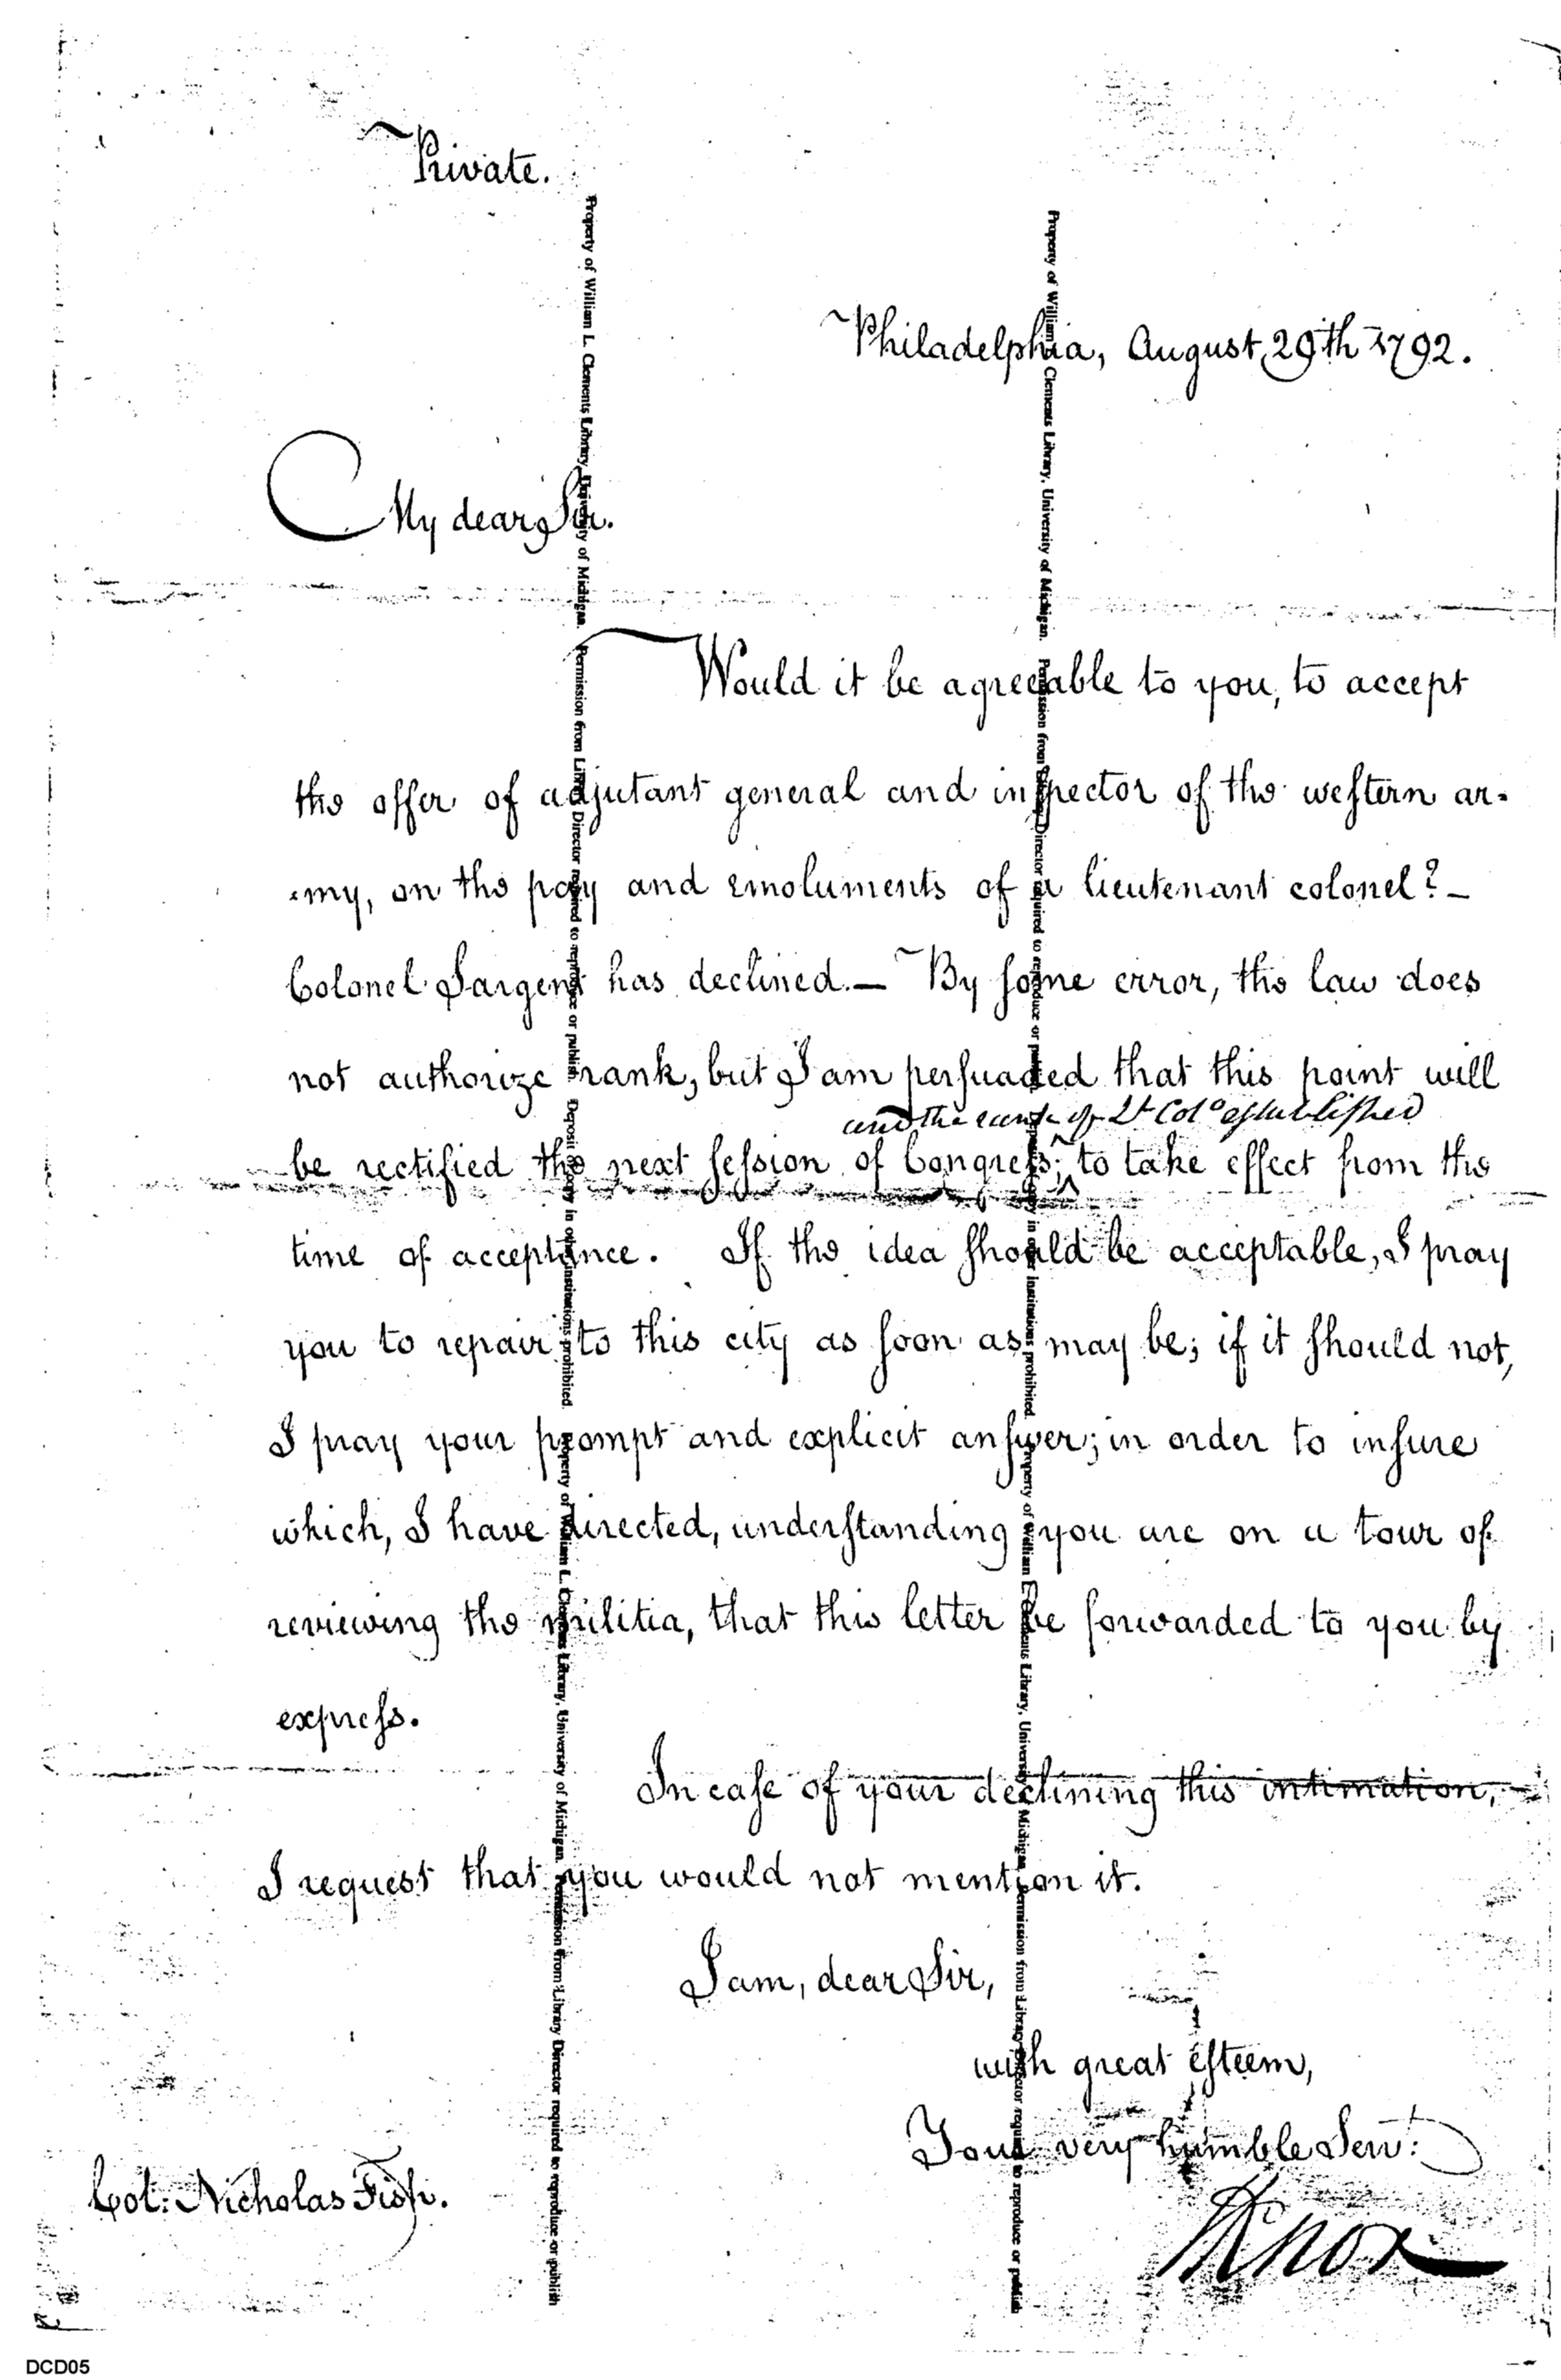 Private.
Philadelphia, August 29th 1792.
My dear Sir.
Would it be agreeable to you, to accept
the offer of adjutant general and inſpector of the weſtern ar-
-my, on the pay and emoluments of a lieutenant colonel? —
Colonel Sargent has declined. — By ſome error, the law does
not authorize rank, but I am perſuaded that this point will
and the rank of Lt Colo eſtabliſhed
be rectified the next ſeſsion of Congreſs; ^ to take effect from the
time of acceptance. If the idea ſhould be acceptable, I pray
you to repair to this city as ſoon as may be; if it ſhould not,
I pray your prompt and explicit anſwer; in order to inſure
which, I have directed, underſtanding you are on a tour of
reviewing the militia, that this letter be forwarded to you by
expreſs.
In caſe of your declining this intimation,
I request that you would not mention it.
I am, dear Sir,
with great eſteem,
Your very humble Servt:
Col: Nicholas Fish.
HKnox
Property of William L. Clements Library, University of Michigan. Permission from Library Director required to reproduce or publish. Deposit of copy in other institutions prohibited. Property of William L. Clements Library, University of Michigan. Permission from Library Director required to reproduce or publish
Property of William L. Clements Library, University of Michigan. Permission from Library Director required to reproduce or publish. Deposit of copy in other institutions prohibited. Property of William L. Clements Library, University of Michigan. Permission from Library Director required to reproduce or publish
DCD05